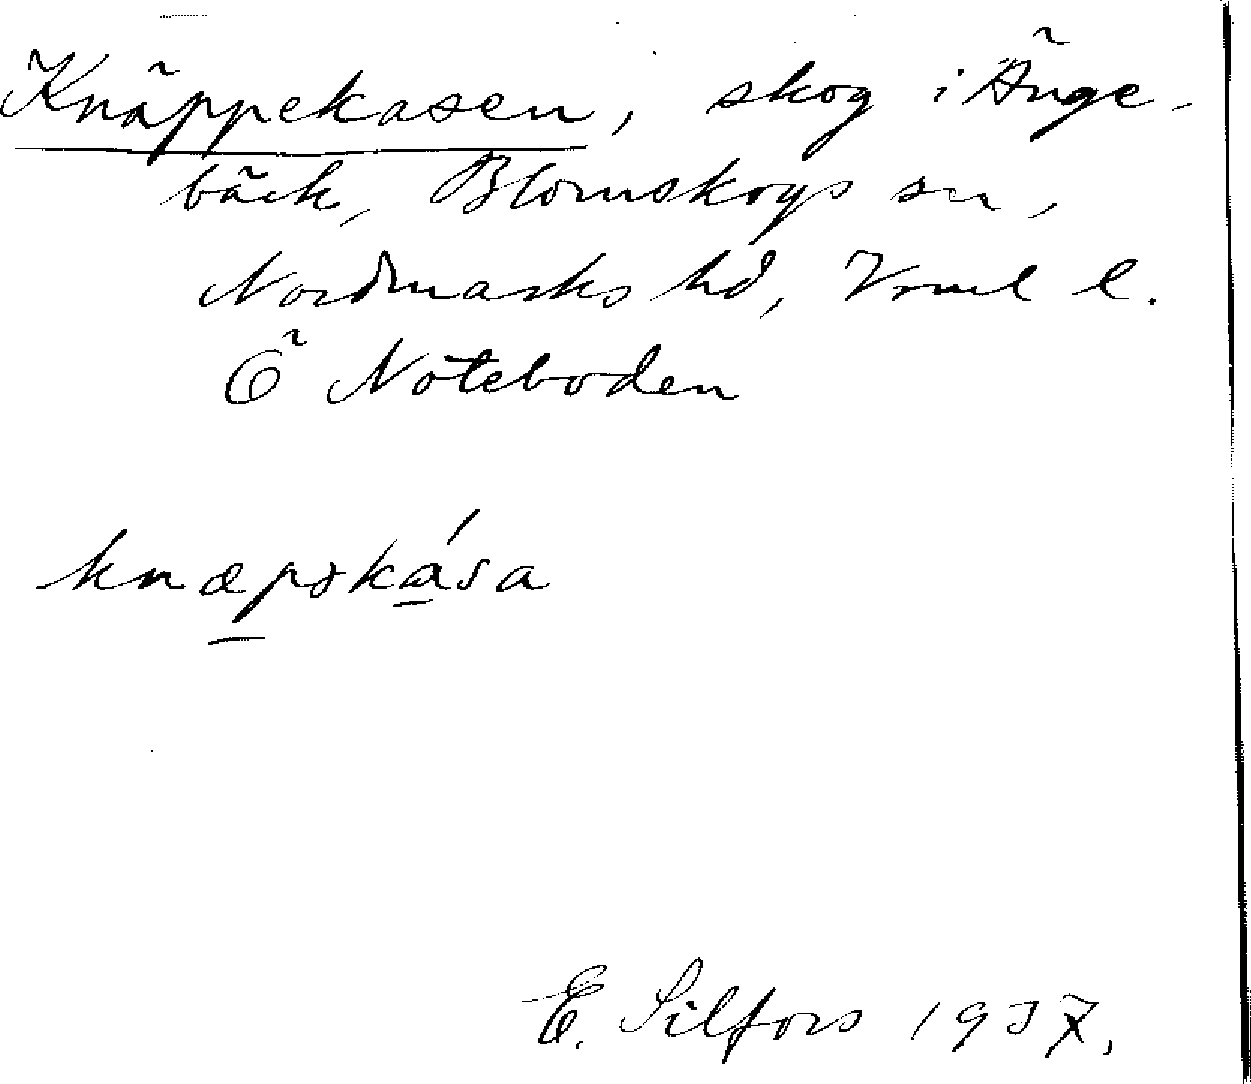 Knäppekasen, skog i Änge-
bäck, Blomskogs sn,
Nordmarks hd, Vrml l.
Ö Nöteboden
knæpəkása
E. Silfors 1937.